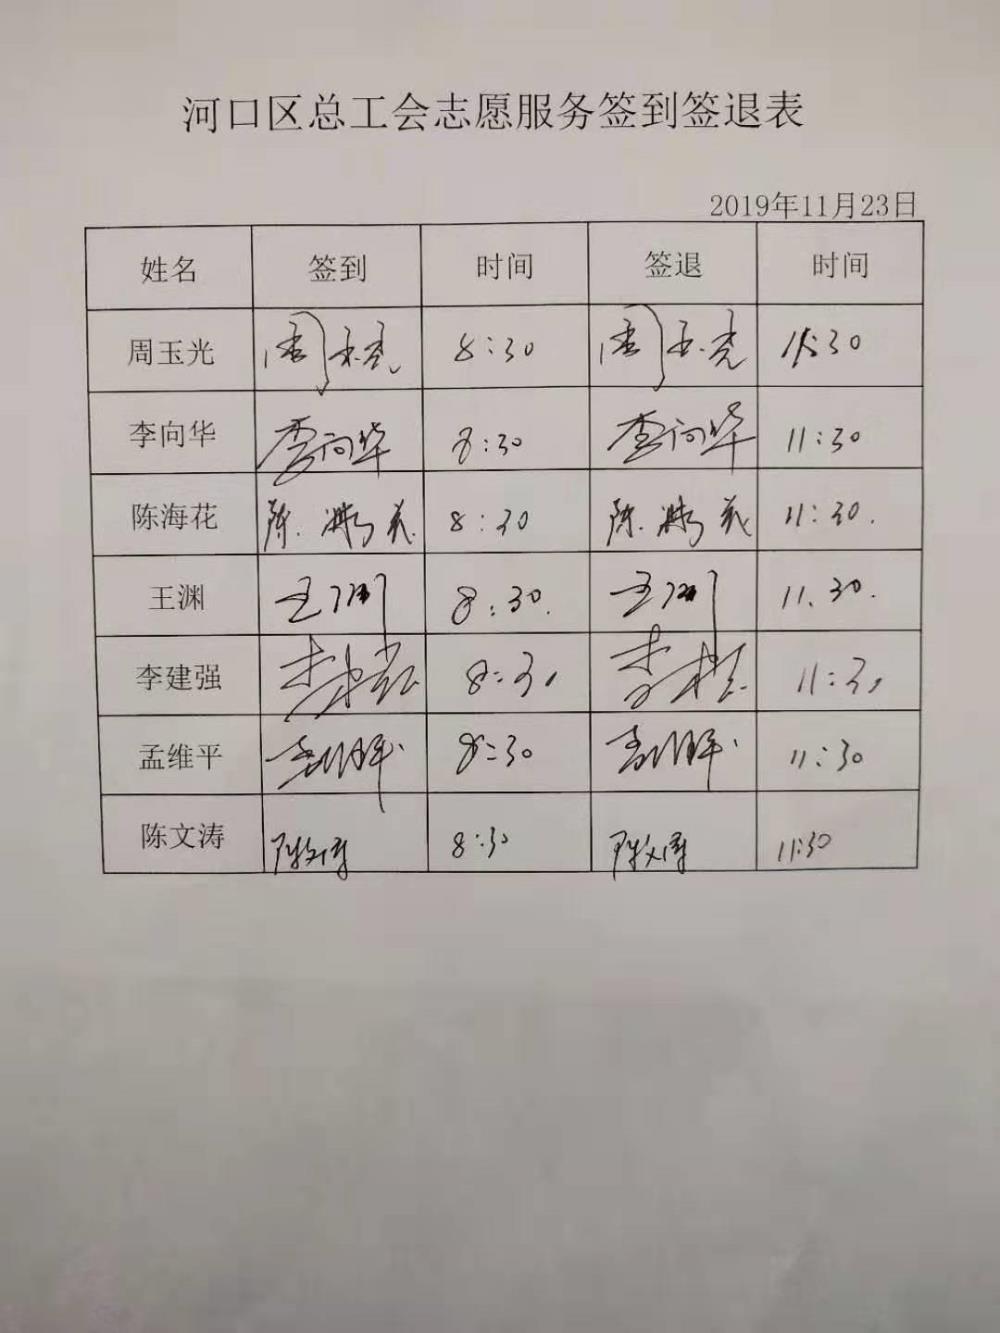 河口区总工会志愿服务签到签退表
2019年11月23日
姓名 签到 时间 签退 时间
周玉光 周玉光 8:30 周玉光 11:30
李向华 李向华 8:30 李向华 11:30
陈海花 陈海花 8:30 陈海花 11:30.
王渊 王渊 8:30. 王渊 11.30.
李建强 李建强 8:30 李建强 11:30
孟维平 孟维平 8:30 孟维平 11:30
陈文涛 陈文涛 8:30 陈文涛 11:30